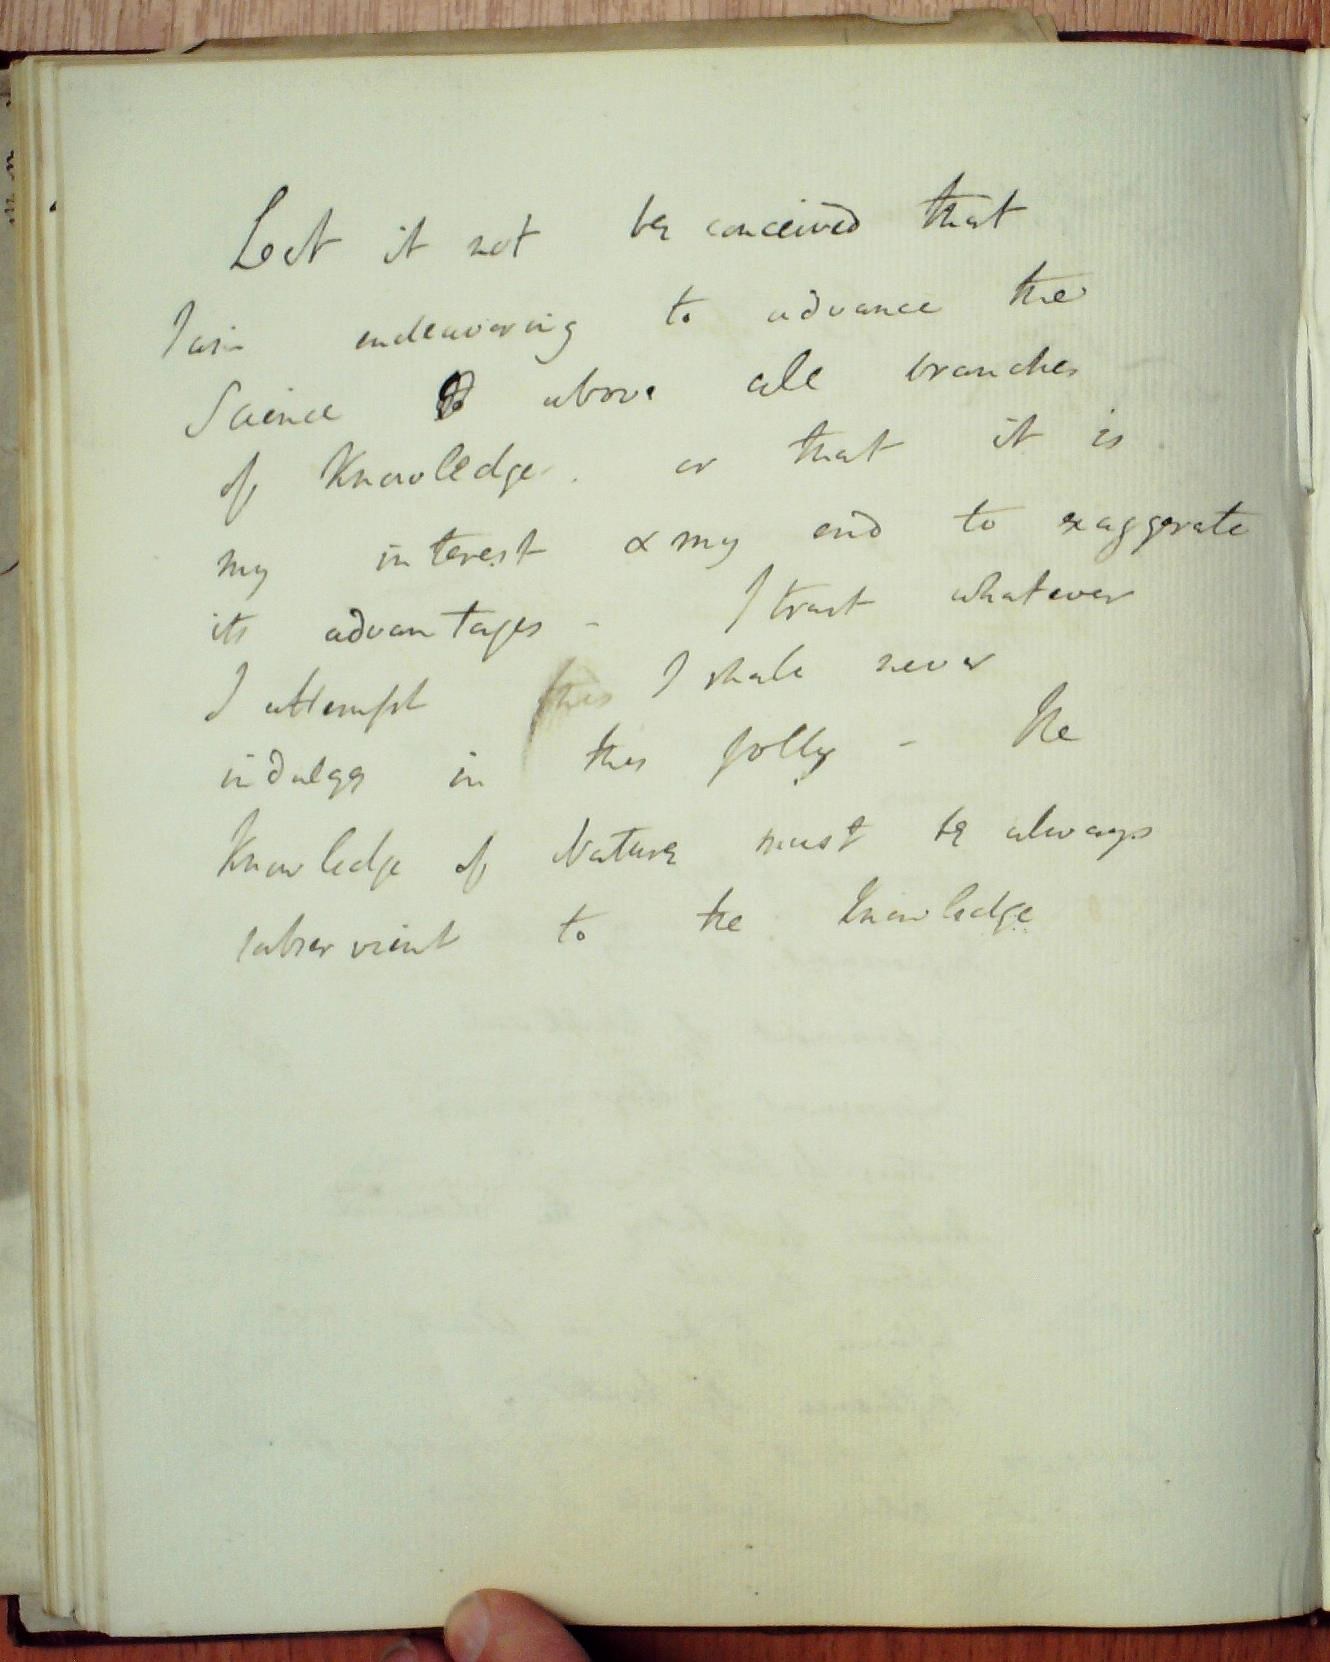 Let it not be conceived that
I am endeavoring to advance the
Science above all branches
of Knowledge. or that it is
my interest & my end to exaggerate
its advantages - I trust whatever
I attempt this I shall never
indulge in this folly - the
Knowledge of Nature must be always
subservient to the knowledge